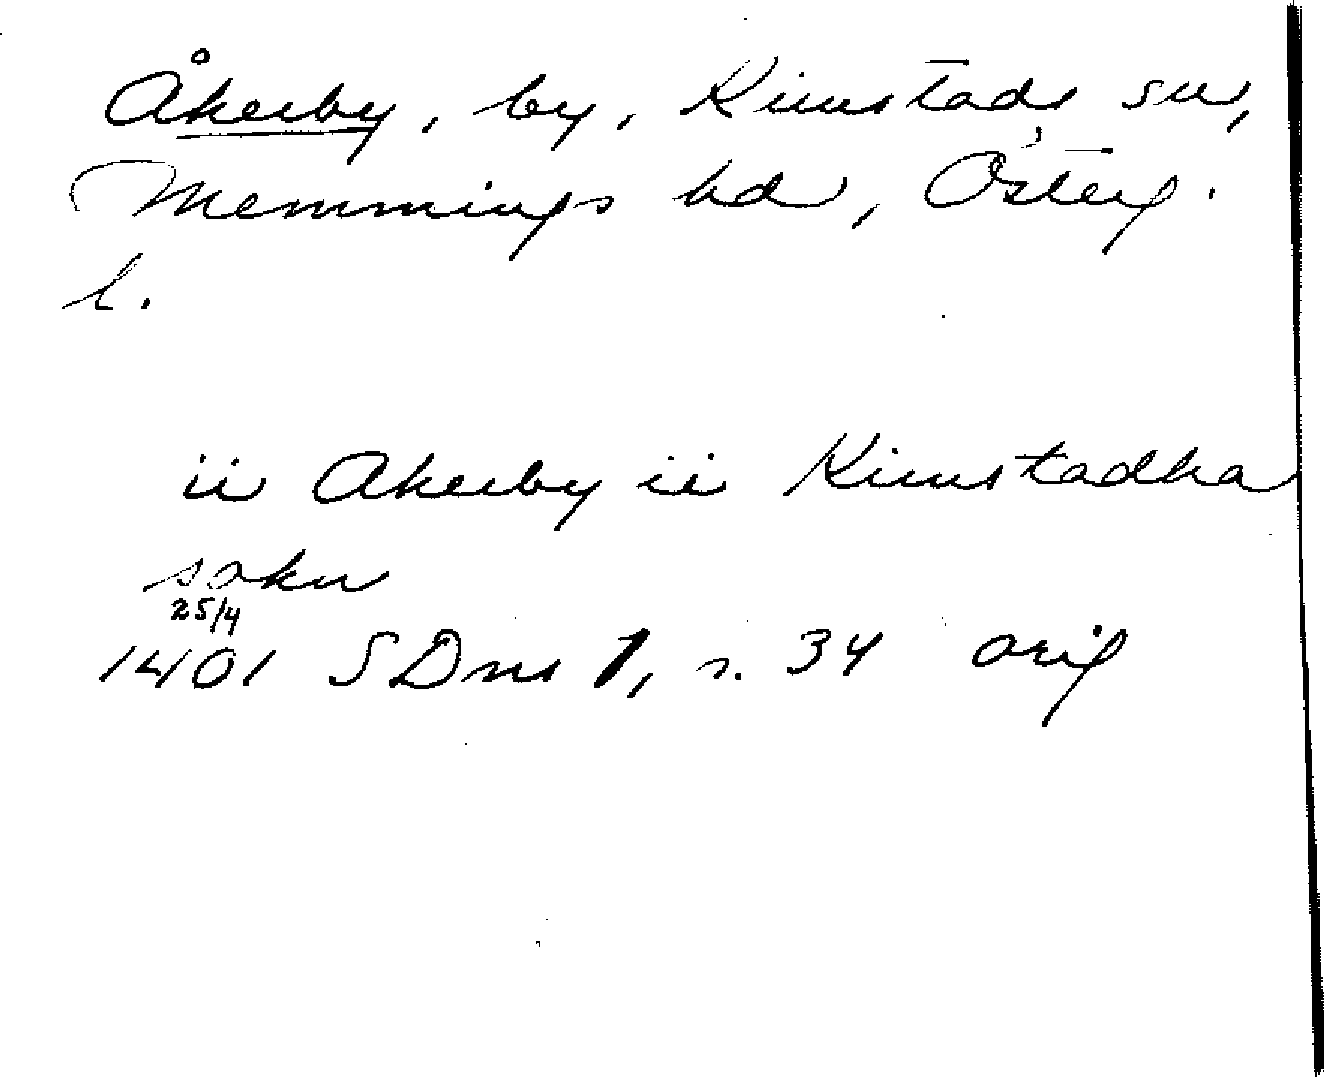 Åkerby, by, Kimstads sn,
Memmings hd, Österg.
l.
ii Akerby ii Kimstadha
sokn
25/4
1401 SDns 1, s. 34 orig